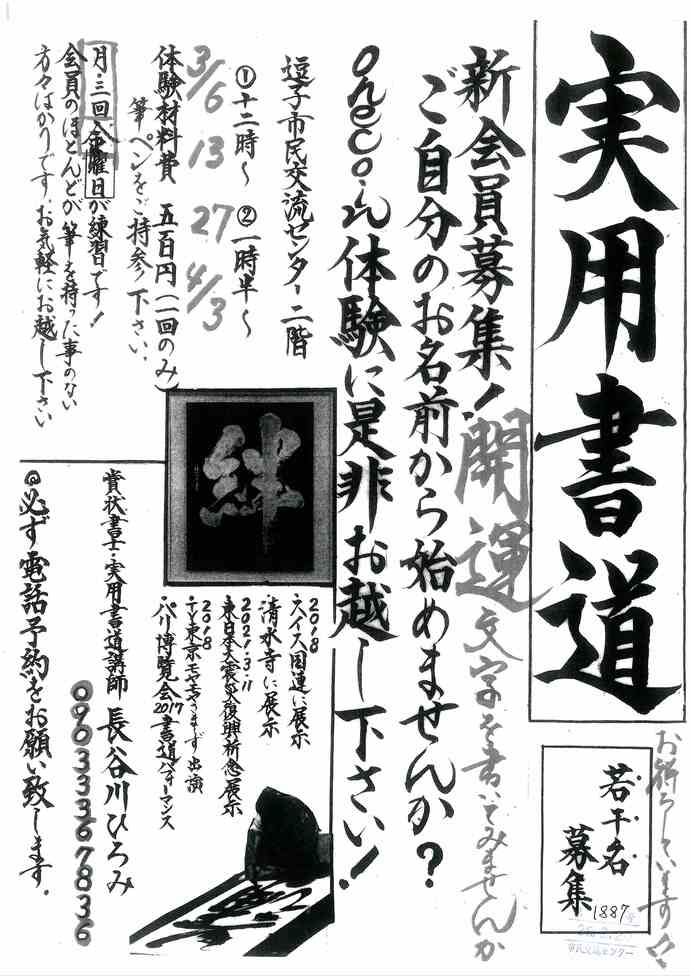 実用書道
お待ちしています!!
若干名
募集
1887号
市民交流センター
新会員募集!開運文字を書いてみませんか
ご自分のお名前から始めませんか?
onecoin体験に是非お越し下さい!
逗子市民交流センター二階
①十二時~ ②一時半~
3/6 13 27 4/3
体験材料費 五百円(一回のみ)
筆ペンをご持参下さい。
月・三回金曜日が練習です!
会員のほとんどが筆を持った事のない
方々ばかりです。お気軽にお越し下さい
絆
2018
・スイス国連に展示
清水寺に展示
2021.3.11
東日本大震災復興祈念展示
2018
・テレビ東京モヤモヤさまぁ~ず出演
・パリ博覧会2017書道パフォーマンス
賞状書士・実用書道講師 長谷川ひろみ
09033367836
◎必ず電話予約をお願い致します。